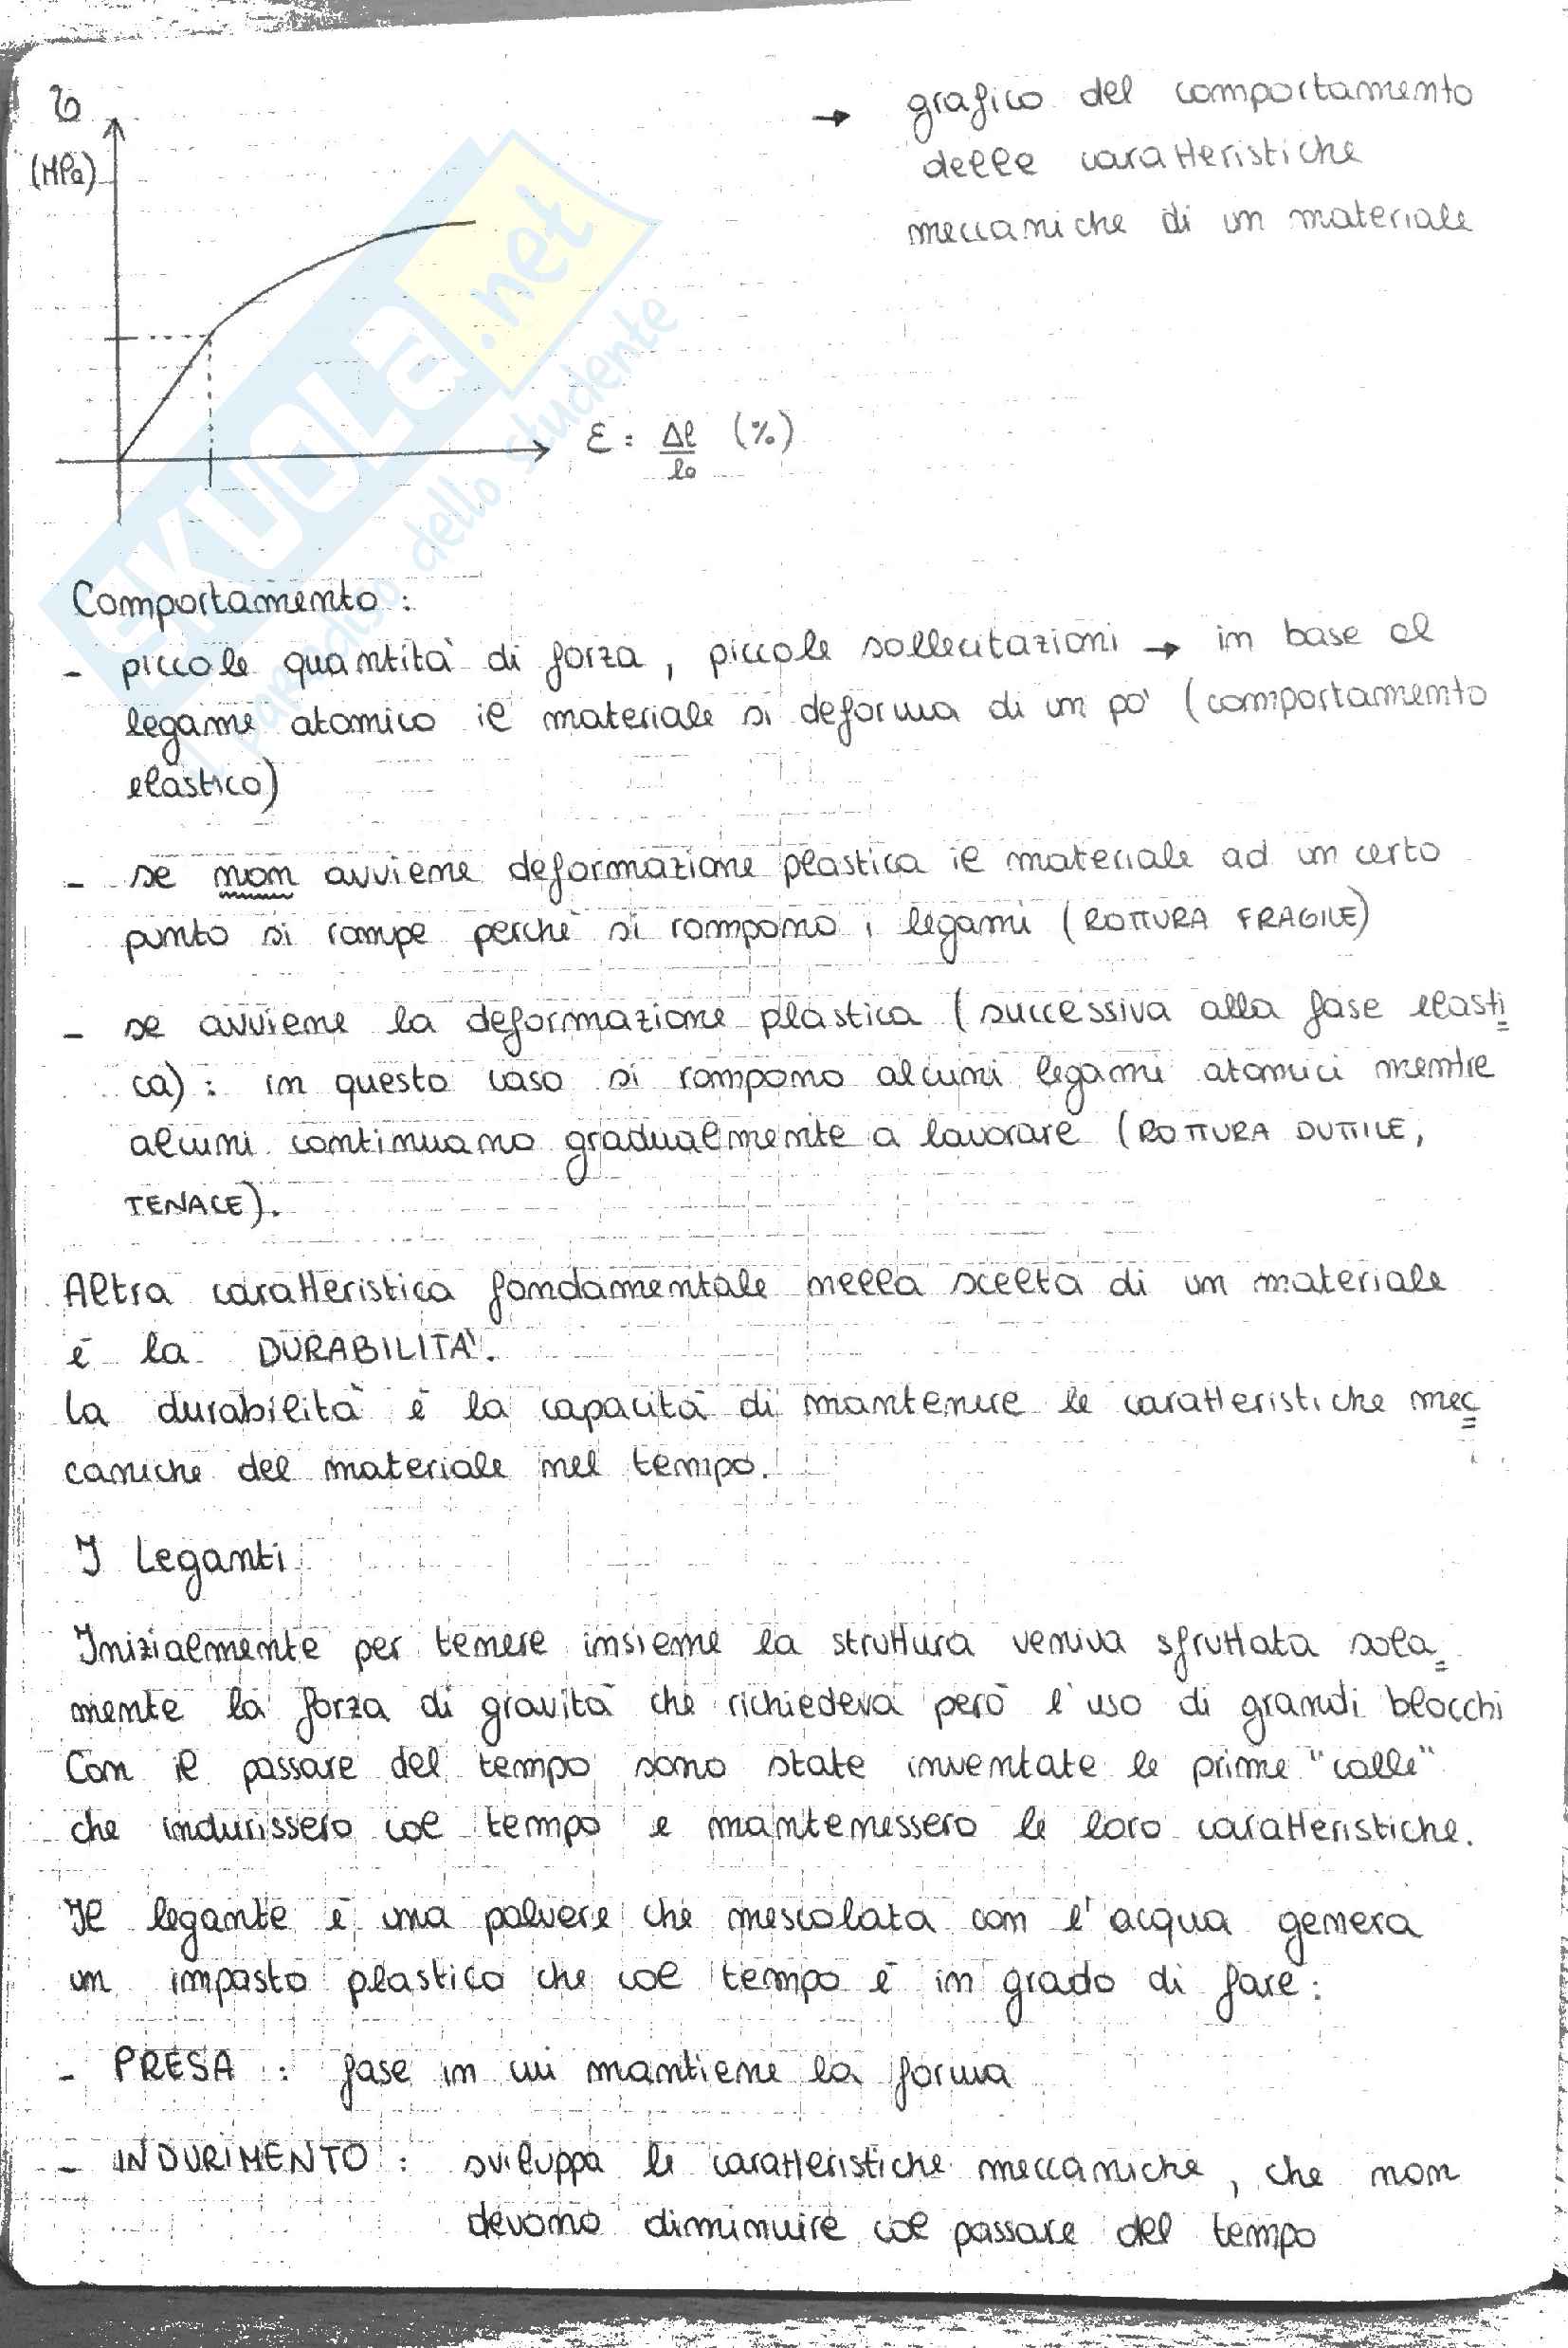 σ
(MPa)
→ grafico del comportamento
delle caratteristiche
meccaniche di un materiale
ε = Δl/l₀ (%)
SKUOLA.net
il paradiso dello studente
Comportamento :
- piccole quantità di forza, piccole sollecitazioni → in base al
legame atomico il materiale si deforma di un pò (comportamento
elastico)
- se non avviene deformazione plastica il materiale ad un certo
punto si rompe perchè si rompono i legami (ROTTURA FRAGILE)
- se avviene la deformazione plastica (successiva alla fase elasti=
ca) : in questo caso si rompono alcuni legami atomici mentre
alcuni continuano gradualmente a lavorare (ROTTURA DUTTILE,
TENACE).
Altra caratteristica fondamentale nella scelta di un materiale
è la DURABILITA'.
La durabilità è la capacità di mantenere le caratteristiche mec=
caniche del materiale nel tempo.
I Leganti
Inizialmente per tenere insieme la struttura veniva sfruttata sola=
mente la forza di gravità che richiedeva però l'uso di grandi blocchi
Con il passare del tempo sono state inventate le prime "colle"
che indurissero col tempo e mantenessero le loro caratteristiche.
Il legante è una polvere che mescolata con l'acqua genera
un impasto plastico che col tempo è in grado di fare :
- PRESA : fase in cui mantiene la forma
- INDURIMENTO : sviluppa le caratteristiche meccaniche, che non
devono diminuire col passare del tempo